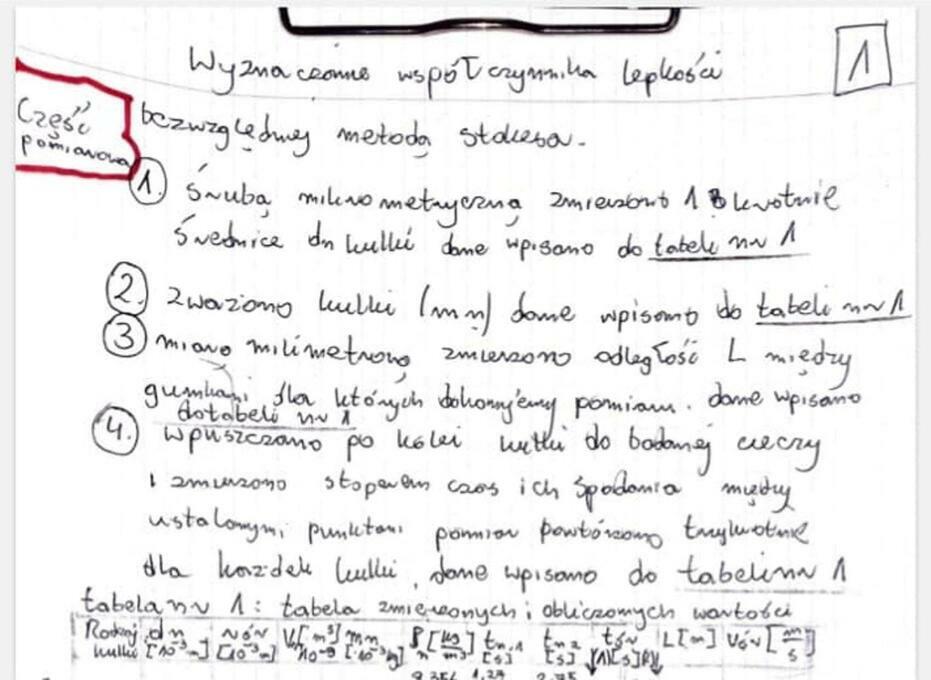 Wyznaczanie współczynnika lepkości
1
Część
pomiarowa
bezwzględnej metodą stokesa.
1. Śrubą mikrometryczną zmierzono 1 krotnie
Średnice dn kulki dane wpisano do tabeli nr 1
2. zważono kulki (mn) dane wpisano do tabeli nr 1
3 miarą milimetrową zmierzono odległość L między
gumkami dla których dokonujemy pomiaru. dane wpisano
do tabeli nr 1
4. wpuszczano po kolei kulki do badanej cieczy
i zmierzono stoperem czas ich spadania między
ustalonymi punktami pomiar powtórzono trzykrotnie
dla każdek kulki, dane wpisano do tabeli nr 1
tabela nr 1: tabela zmierzonych i obliczonych wartości
Rodzaj dn rśr V[m³] mn ρ[kg/m³] tn1 tn2 tśr L[m] Vśr [m/s]
kulki [10⁻³m] [10⁻³m] 10⁻⁹ [10⁻³g] n [s] [s]